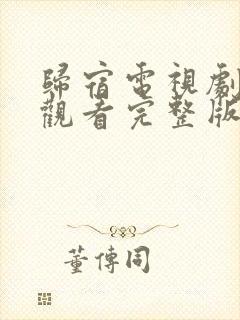 歸宿電視劇
觀看完整版
董傳同